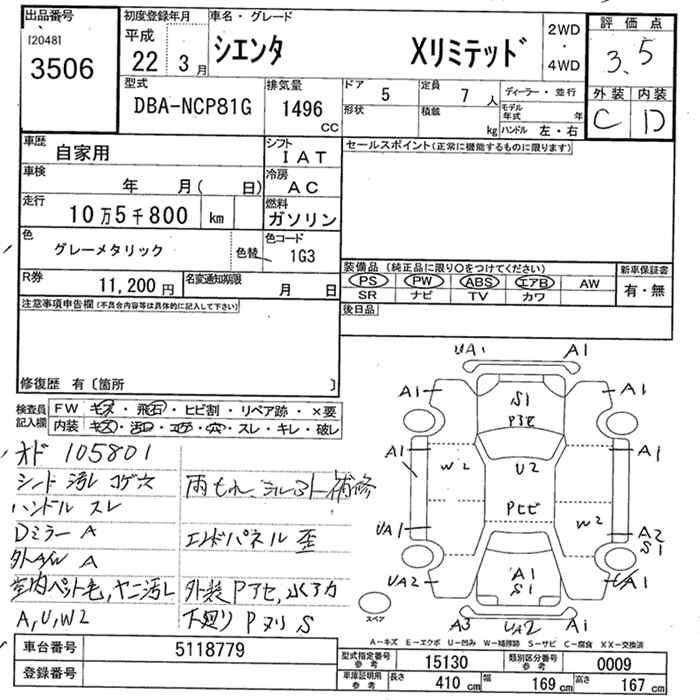 出品番号
120481
3506
初度登録年月
平成
22 3月
車名・グレード
シエンタ Xリミテッド
2WD
・
4WD
評価点
3.5
外装 内装
C D
型式
DBA-NCP81G
排気量
1496 CC
ドア 5
形状
定員 7 人
積載 kg
ディーラー・並行
モデル年式 年
ハンドル 左・右
車歴
自家用
シフト
IAT
セールスポイント(正常に機能するものに限ります)
車検
年 月( 日)
冷房
AC
走行
10万5千800 km
燃料
ガソリン
色
グレーメタリック
色替
色コード
1G3
R券
11,200円
名変通知期限
月 日
装備品 (純正品に限り○をつけてください)
PS PW ABS エアB AW
SR ナビ TV カワ
新車保証書
有・無
後日品
注意事項申告欄(不具合内容等は具体的に記入して下さい)
修復歴 有〔箇所 〕
検査員記入欄
FW キズ・飛石・ヒビ割・リペア跡・×要
内装 キズ・汚れ・コゲ・穴・スレ・キレ・破レ
オド 105801
シート 汚レ コゲ穴
雨もれ、シルフロ一補修
ハンドル スレ
Dミラー A
エンドパネル 歪
外AW A
室内ペット毛,ヤニ汚レ
外装Pアセ,水アカ
A,U,W2
下廻りPヌリ S
UA1 A1
A1 A1
S1
Pアセ
A1 A1
W2 U2
Pヒビ
W2
UA1 A2
S1
UA2 UA1
A1
S1
A3 UA2 A1
スペア
A-キズ E-エクボ U-凹み W-補修跡 S-サビ C-腐食 XX-交換済
車台番号 5118779
登録番号
型式指定番号 参考 15130
類別区分番号 参考 0009
車庫証明用 参考 長さ 410 cm 幅 169 cm 高さ 167 cm